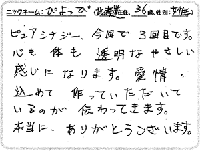 ニックネーム: ぴよっぴ (北海道在, 36歳, 性別:女性)
ピュアシナジー、今回で3回目です。
心も体も透明なやさしい
感じになります。愛情
込めて作っていただいて
いるのが伝わってきます。
本当に、ありがとうございます。